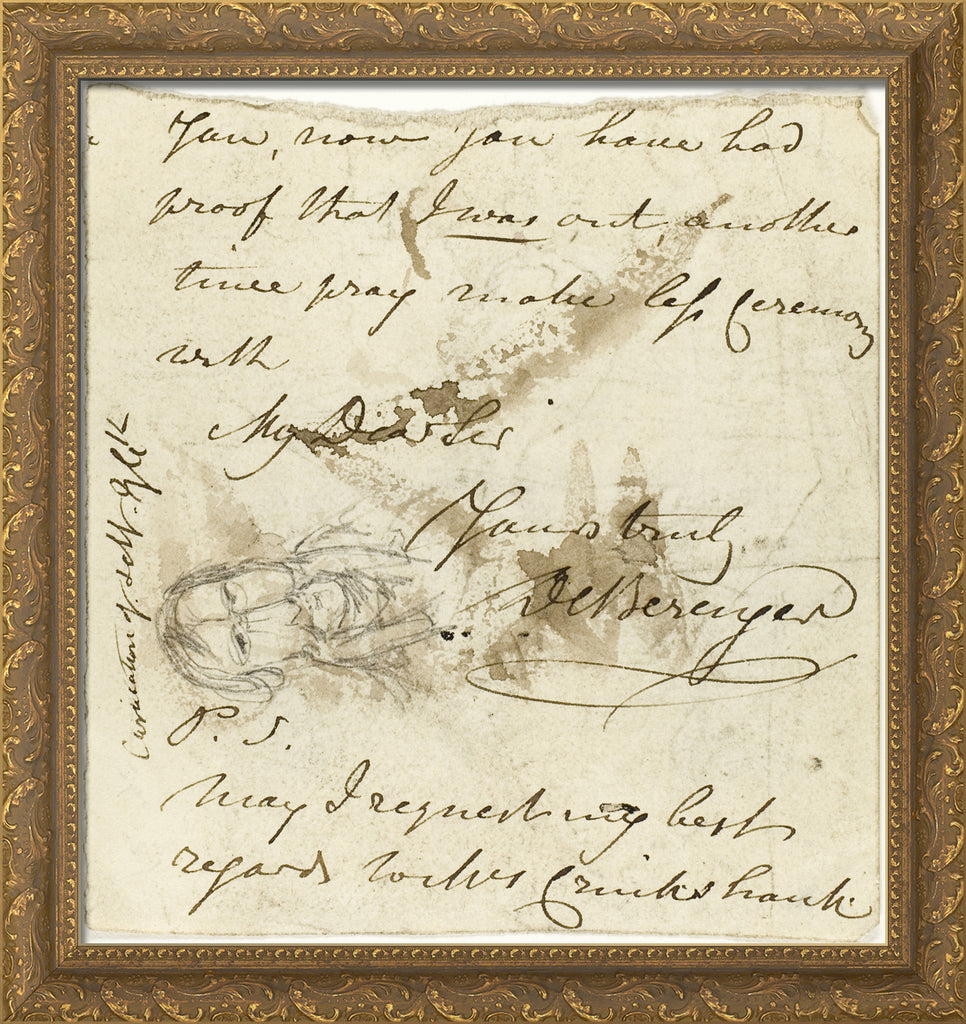 You, now you have had
proof that I was out, another
time pray make less Ceremony
with
My Dear Sir
Yours truly
De Berenger
P. S.
May I request my best
regards to Mrs Cruikshank
Caricature of self. G